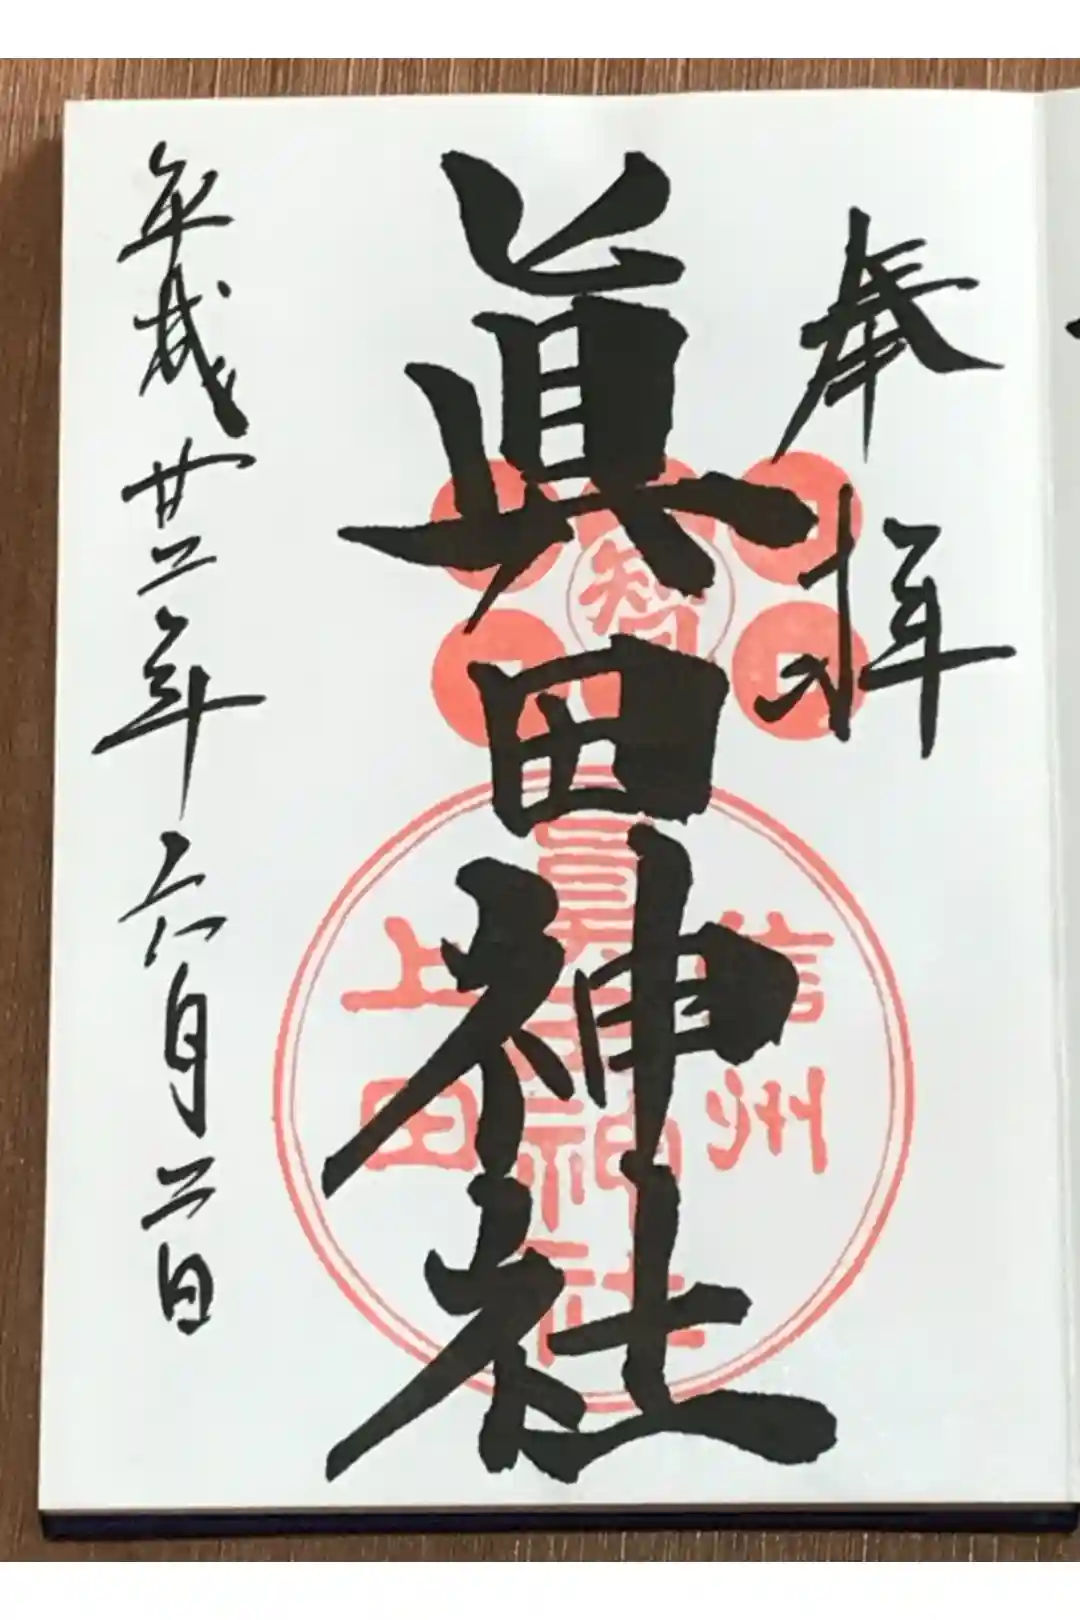 奉拝
眞田神社
智
信州
眞田神社
上田
平成廿二年六月二日